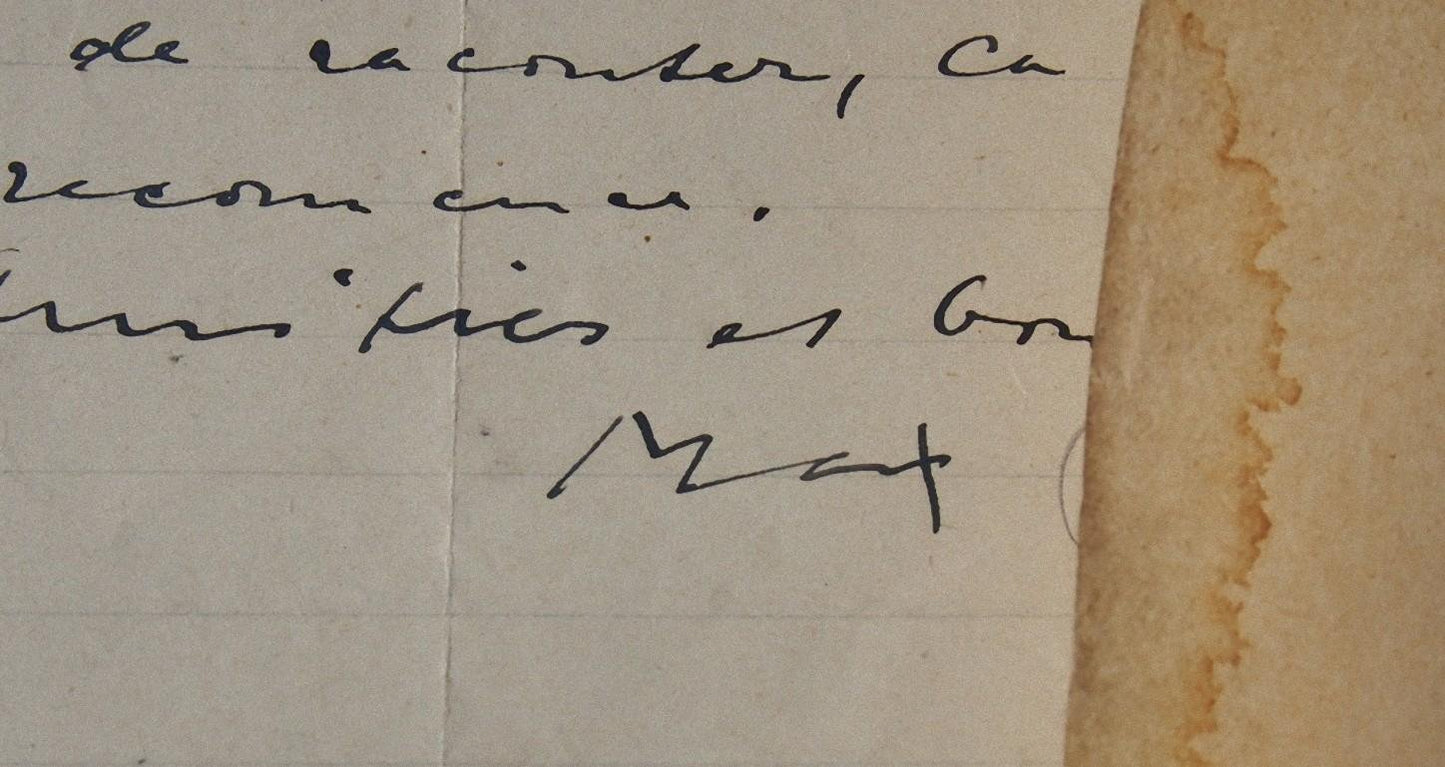 de raconter, ca
recomence.
Amitiés et bon
Max